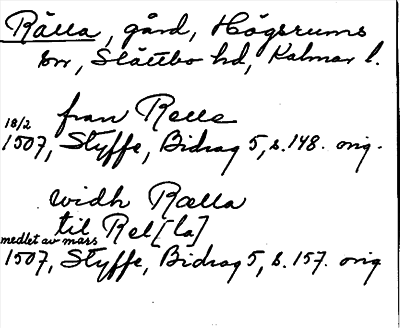 Rälla, gård, Högsrums
sn, Slättbo hd, Kalmar l.
fran Relle
18/2
1507, Styffe, Bidrag 5, s. 148. orig.
widh Rælla
til Rel[la]
medlet av mars
1507, Styffe, Bidrag 5, s. 157. orig